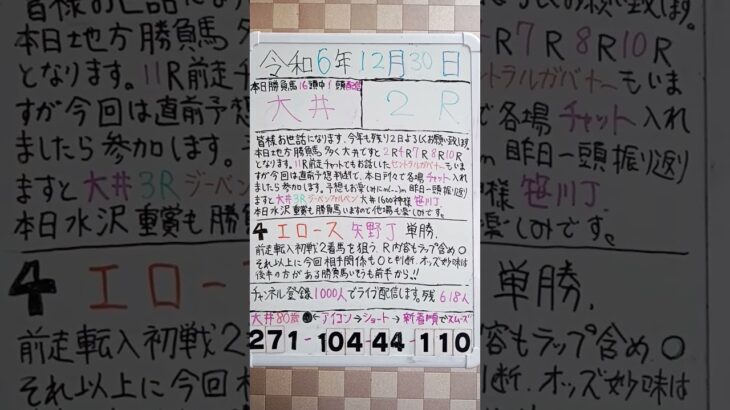 令和6年12月30日
本日勝負馬16頭中1頭配信
大井 2R
皆様お世話になります。今年も残り2日よろしくお願い致します。
本日地方勝負馬多く大井ですと2R4R7R8R10R
となります。11R前走チャートでもお話したセントラルガバナーもいま
すが今回は直前予想判断で、本日所々で各場チャット入れ
ましたら参加します。予想もお楽しみにm(__)m昨日一頭振り返り
ますと大井3Rジーベンフォルベン大井1600神様笹川J
本日水沢重賞も勝負馬いますので他場も楽しみです。
4 エロース 矢野J 単勝.
前走転入初戦2着馬を狙う。R内容もラップ含め〇
それ以上に今回相手関係も〇と判断.オッズ妙味は
後半の方がある勝負馬いそうも前半から!!
チャンネル登録1000人でライブ配信します。残618人
大井80歳 ←アイコン→ショート→新着順でスムーズ
271-104-44-110